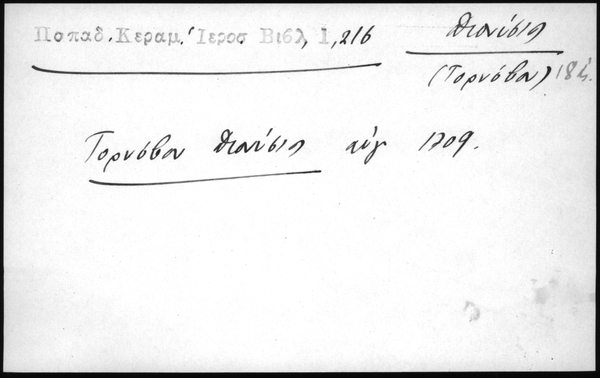 Παπαδ. Κεραμ. Ἱεροσ Βιβλ 1, 216
Διονύσιος
(Τορνόβου) 18
Τορνόβου Διονύσιος αὐγ 1709.